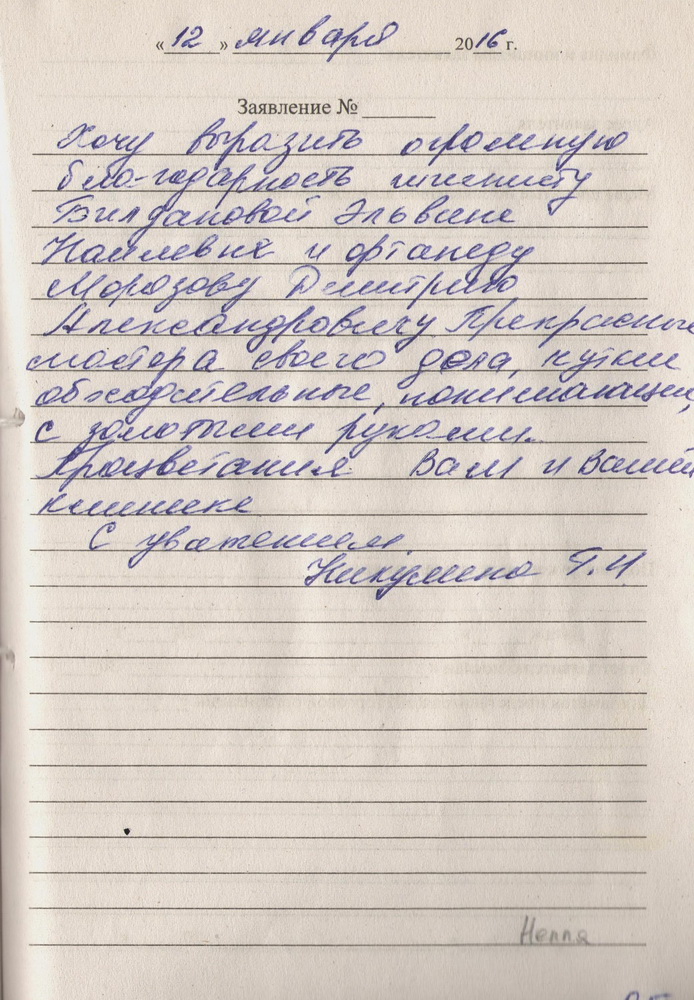 « 12 » января 2016 г.
Заявление №
Хочу выразить огромную
благодарность гигиенисту
Билдановой Эльвине
Наилевне и ортопеду
Морозову Дмитрию
Александровичу. Прекрасные
мастера своего дела, чуткие
обходительные, понимающие,
с золотыми руками.
Процветания Вам и Вашей
клинике
С уважением
Никулина Г. И.
Нелля